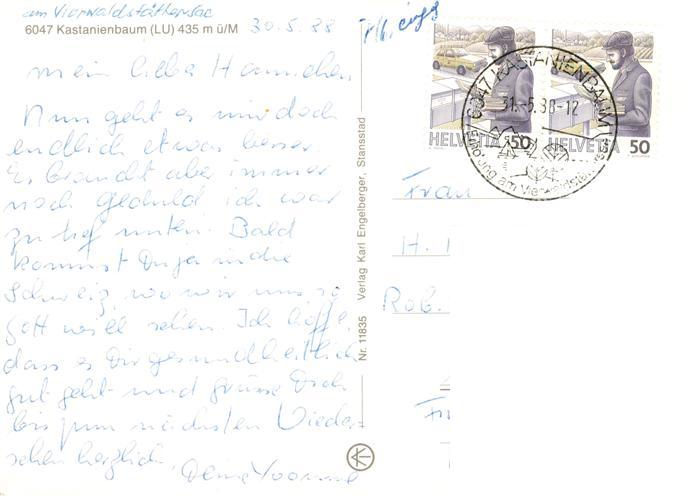 am Vierwaldstättersee
6047 Kastanienbaum (LU) 435 m ü/M
30.5.88
Mein liebes Hannchen,
Nun geht es mir doch
endlich etwas besser.
Es braucht aber immer
noch Geduld ich war
zu tief unten. Bald
kommst Du ja in die
Schweiz, wo wir uns so
Gott will sehen. Ich hoffe,
dass es Dir gesundheitlich
gut geht und grüsse Dich
bis zum nächsten Wieder-
sehen herzlich,
Deine Yvonne
Nr. 11835 Verlag Karl Engelberger, Stansstad
HELVETIA 50
HELVETIA 50
6047 KASTANIENBAUM
31.-5.88-12
am Vierwaldstättersee
Frau
H.
Rob.